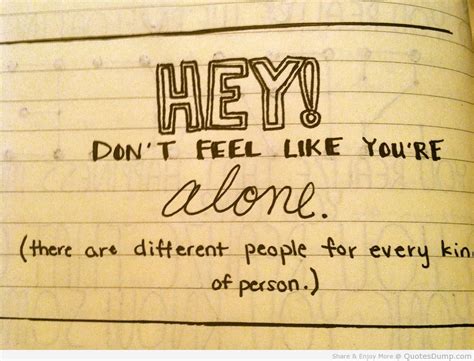 HEY!
DON'T FEEL LIKE YOU'RE
alone.
(there are different people for every kin
of person.)
Share & Enjoy More @ QuotesDump.com